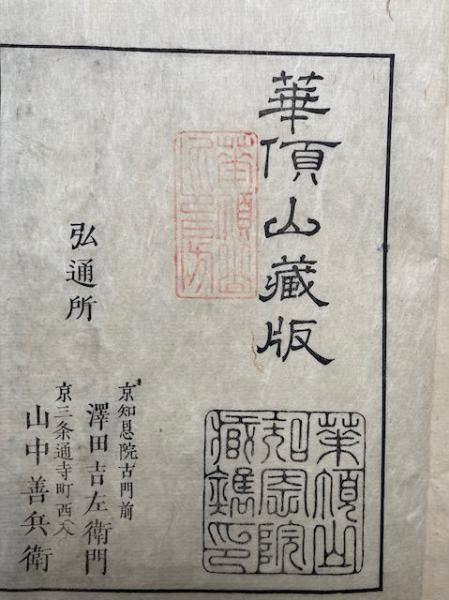 華頂山藏版
弘通所
京知恩院古門前
澤田吉左衛門
京三条通寺町西入
山中善兵衛
華頂山
知恩院
藏鐫印